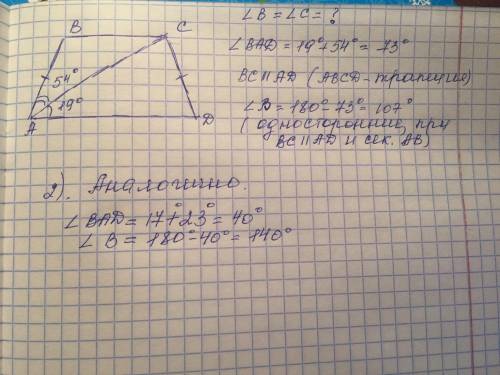 ∠B = ∠C = ?
∠BAD = 19°+54° = 73°
BC∥AD (ABCD - трапеция)
∠B = 180° - 73° = 107°
(односторонние, при
BC∥AD и сек. AB)
B
C
54°
19°
A
D
2). Аналогично.
∠BAD = 17°+23° = 40°
∠B = 180° - 40° = 140°